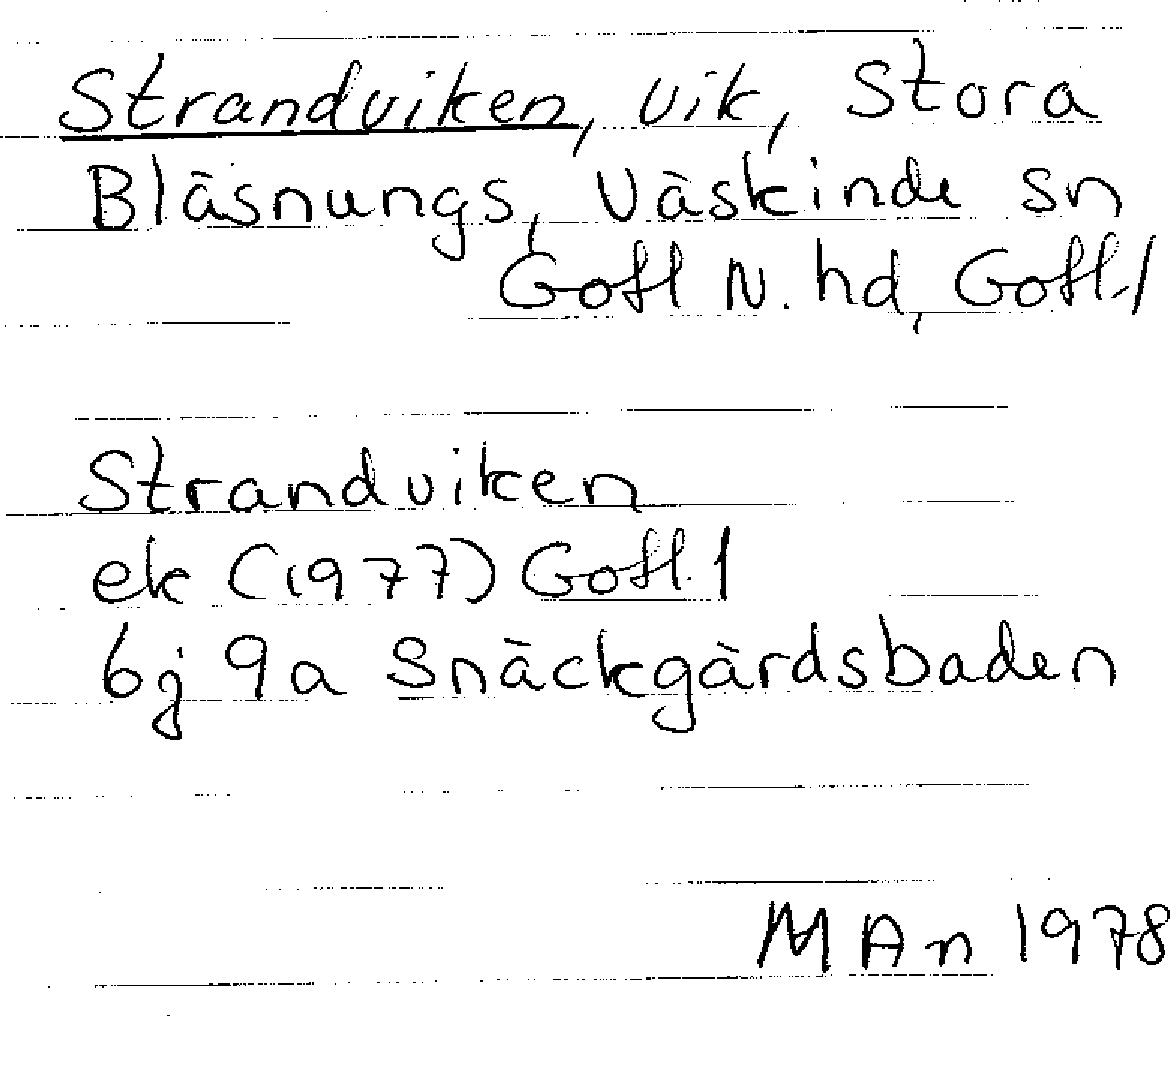 Strandviken, vik, Stora
Bläsnungs, Väskinde sn
Gotl N. hd, Gotl. l
Strandviken
ek (1977) Gotl. l
6j 9a Snäckgärdsbaden
M An 1978